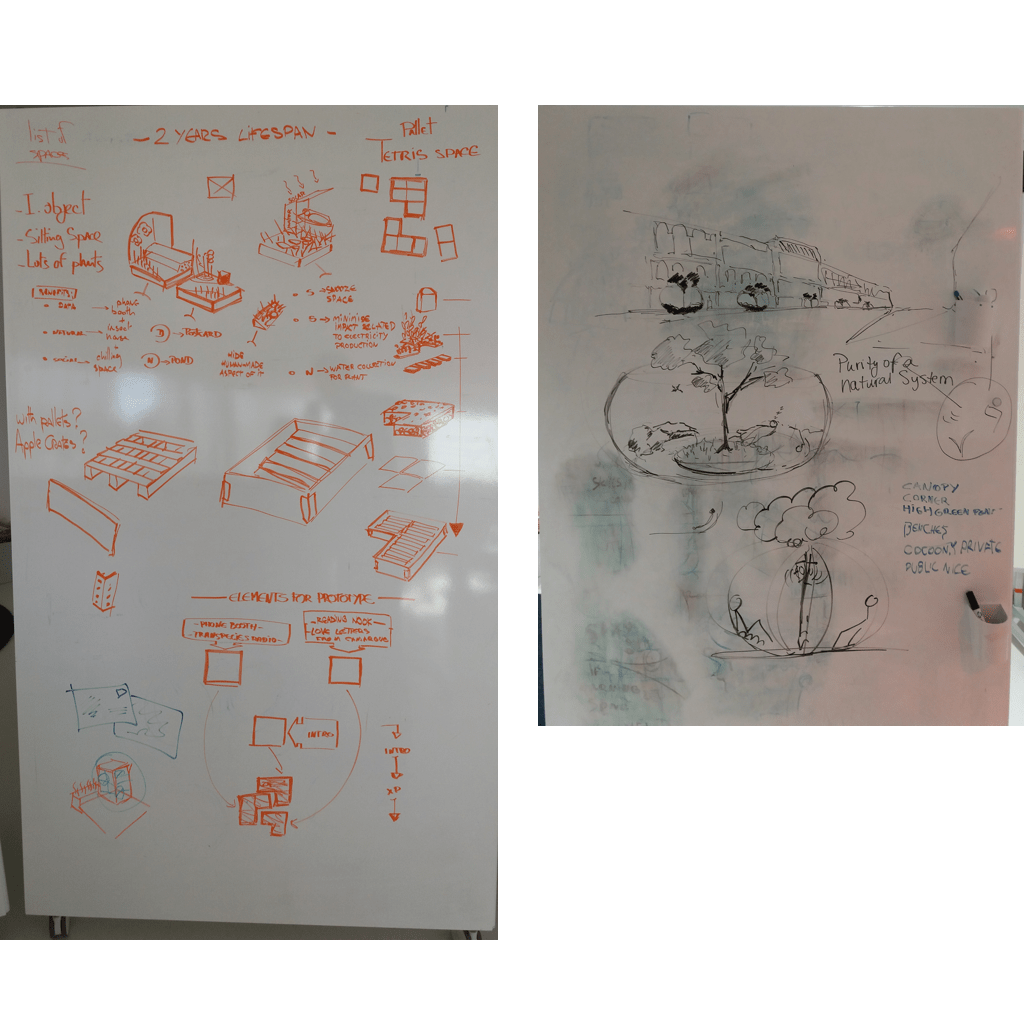 list of
SPACES
- 2 YEARS LIFESPAN -
Pallet
TETRIS SPACE
- I. object
- Sitting Space
- Lots of plants
BENEFITS:
• DATA → phone booth
• NETWORK → insect house
• SOCIAL → chilling space
B → POSTCARD
N → POND
HIDE
HUMAN-MADE
ASPECT OF IT
• S → SNOOZE
SPACE
• S → MINIMISE
IMPACT RELATED
TO ELECTRICITY
PRODUCTION
• N → WATER COLLECTION
FOR PLANT
with pallets?
Apple Crates?
ELEMENTS FOR PROTOTYPE
- PHONE BOOTH -
- READING NOOK -
- LOVE LETTERS
INTRO
INTRO
XP
Purity of a
natural System
CANOPY
CORNER
HIGH GREEN POINT
BENCHES
COCOONY PRIVATE
PUBLIC NICE